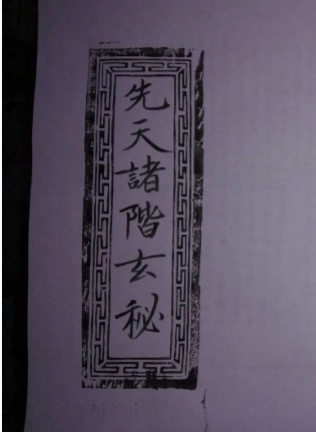 先天諸階玄秘